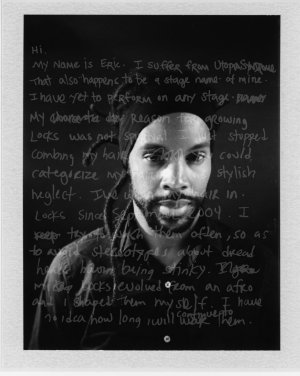 Hi.
My Name is Eric. I suffer from Utopia Syndrome
that also happens to be a stage name of mine.
I have yet to perform on any stage.
My reason growing
Locks was not special just stopped
combing my hair could
categorize my stylish
neglect. I've in
Locks since 2004. I
keep them often, so as
to avoid stereotypes about dread
heads being stinky.
My locks evolved from an afro
and I shaped them myself. I have
no idea how long I will continue to wear them.